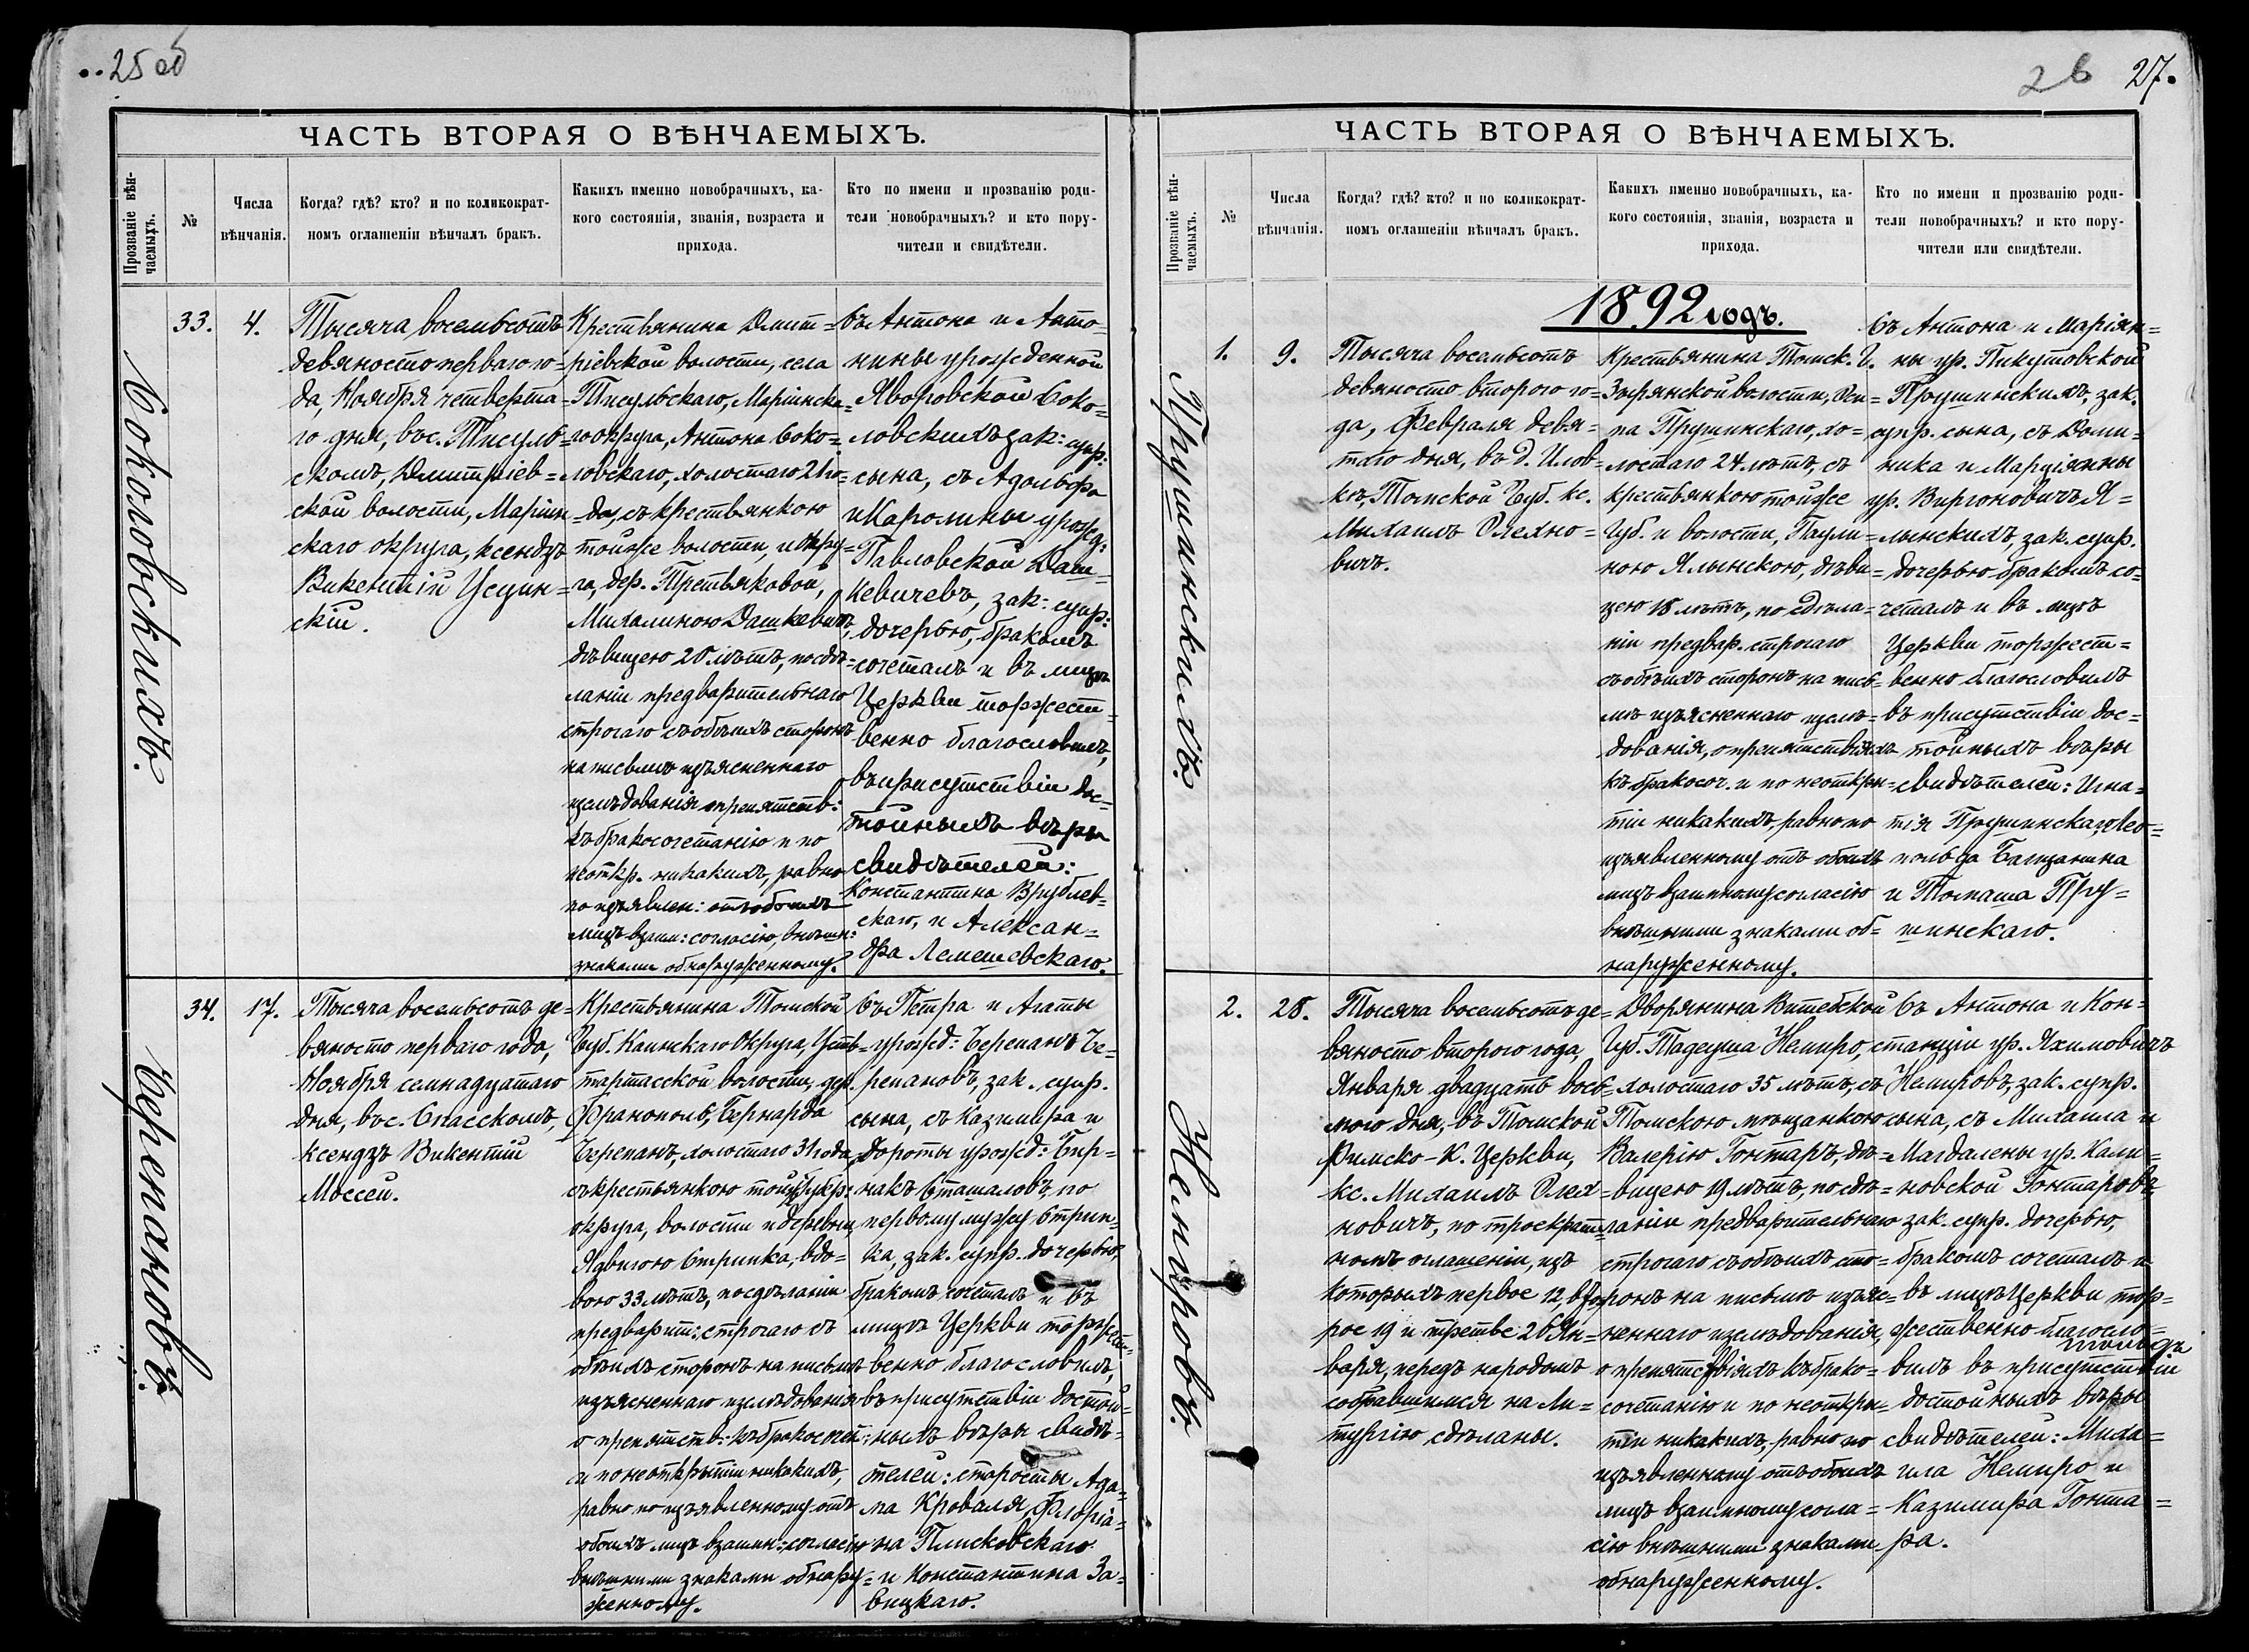 25 об
ЧАСТЬ ВТОРАЯ О ВѢНЧАЕМЫХЪ.
Прозваніе вѣн-
чаемыхъ.
№
Числа
вѣнчанія.
Когда? гдѣ? кто? и по коликократ-
номъ оглашеніи вѣнчалъ бракъ.
Какихъ именно новобрачныхъ, ка-
кого состоянія, званія, возраста и
прихода.
Кто по имени и прозванію роди-
тели новобрачныхъ? и кто пору-
чители и свидѣтели.
Соколовскихъ.
33.
4.
Тысяча восемьсотъ
девяносто перваго го-
да, Ноября четверта-
го дня, въ с. Тисуль-
скомъ, Дмитріев-
ской волости, Маріин-
скаго округа, ксендзъ
Викентій Усцин-
скій.
Крестьянина Дмит-
ріевской волости, села
Тисульскаго, Маріинска-
го округа, Антона Соко-
ловскаго, холостаго 21 го-
да, съ крестьянкою
тойже волости, и окру-
га, дер. Третьяковой,
Михалиною Дашкевичъ,
дѣвицею 20 лѣтъ, по сдѣ-
ланіи предварительнаго
строгаго съ обѣихъ сторонъ
на письмѣ изъясненнаго
изслѣдованія о препятств:
къ бракосочетанію и по
неоткр. никакихъ, равно
по изъявлен: отъ обоихъ
лицъ взаим: согласію, внѣшн:
знаками обнаруженному.
съ Антона и Анто-
нины урожденной
Яворовской Соко-
ловскихъ зак: супр:
сына, съ Адольфа
и Каролины урожд:
Павловской Даш-
кевичевъ, зак: супр:
дочерью, бракомъ
сочеталъ и въ лицѣ
Церкви торжест-
венно благословилъ,
въ присутствіи дос-
тойныхъ вѣры
свидѣтелей:
Константина Врублев-
скаго, и Алексан-
дра Лемешевскаго.
Черепановъ.
34.
17.
Тысяча восемьсотъ де-
вяносто перваго года,
Ноября семнадцатаго
дня, въ с. Спасскомъ,
ксендзъ Викентій
Моссей.
Крестьянина Томской
Губ. Каинскаго Округа, Усть-
тартасской волости, дер.
Франополь, Бернарда
Черепанъ, холостаго 31 года,
съ крестьянкою тойже губ:
округа, волости и деревни,
Ядвигою Стрипка, вдо-
вою 33 лѣтъ, по сдѣланіи
предварит: строгаго съ
обѣихъ сторонъ на письмѣ
изъясненнаго изслѣдованія
о препятств: къ бракосочет:
и по неоткрытіи никакихъ,
равно по изъявленному отъ
обоихъ лицъ взаимн: согласію
внѣшними знаками обнару-
женному.
Съ Петра и Агаты
урожд: Черепанъ Че-
репановъ, зак. супр.
сына, съ Казимира и
Дороты урожд: Бир-
накъ Сташаловъ, по
первому мужу Стрип-
ка, зак. супр. дочерью,
бракомъ сочеталъ и въ
лицѣ Церкви торжест-
венно благословилъ,
въ присутствіи достой-
ныхъ вѣры свидѣ-
телей: старосты Ада-
ма Кроваля, Флоріа-
на Плисковскаго
и Константина За-
вицкаго.
26 27.
ЧАСТЬ ВТОРАЯ О ВѢНЧАЕМЫХЪ.
Прозваніе вѣн-
чаемыхъ.
№
Числа
вѣнчанія.
Когда? гдѣ? кто? и по коликократ-
номъ оглашеніи вѣнчалъ бракъ.
Какихъ именно новобрачныхъ, ка-
кого состоянія, званія, возраста и
прихода.
Кто по имени и прозванію роди-
тели новобрачныхъ? и кто пору-
чители или свидѣтели.
1892 годъ.
Прушинскихъ.
1.
9.
Тысяча восемьсотъ
девяносто второго го-
да, Февраля девя-
таго дня, въ д. Илов-
кѣ, Томской Губ. кс.
Михаилъ Олехно-
вичъ.
Крестьянина Томск. Г.
Зырянской волости, Оси-
па Прушинскаго, хо-
лостаго 24 лѣтъ, съ
крестьянкою тойже
Губ. и волости, Паули-
ною Ялынскою, дѣви-
цею 18 лѣтъ, по сдѣла-
ніи предвар. строгаго
съ обѣихъ сторонъ на пись-
мѣ изъясненнаго излѣ-
дованія, о препятствіяхъ
къ бракосоч. и по неоткры-
тіи никакихъ, равно по
изъявленному отъ обоихъ
лицъ взаимному согласію
внѣшними знаками об-
наруженному.
съ Антона и Маріян-
ны ур. Пикутовской
Прушинскихъ, зак.
супр. сына, съ Доми-
ника и Марціянны
ур. Виргоновичъ Я-
лынскихъ, зак. супр.
дочерью бракомъ со-
четалъ и въ лицѣ
Церкви торжест-
венно благословилъ
въ присутствіи дос-
тойныхъ вѣры
свидѣтелей: Игна-
тія Прушинскаго, Лео-
польда Багцанина
и Томаша Пру-
шинскаго.
Немировъ.
2.
28.
Тысяча восемьсотъ де-
вяносто второго года,
Января двадцать вось-
мого дня, въ Томской
Римско-К. Церкви,
кс. Михаилъ Олех-
новичъ, по троекрат-
номъ оглашеніи, изъ
которыхъ первое 12, вто-
рое 19 и третье 26 Ян-
варя, передъ народомъ
собравшимся на Ли-
тургію сдѣланы.
Дворянина Витебской
Губ. Тадеуша Немиро,
холостаго 35 лѣтъ, съ
Томскою мѣщанкою
Валерію Гонтаръ, дѣ-
вицею 19 лѣтъ, по сдѣ-
ланіи предварительнаго
строгаго съ обѣихъ сто-
ронъ на письмѣ изъяс-
неннаго излѣдованія,
о препятствіяхъ къ брако-
сочетанію и по неоткры-
тіи никакихъ, равно по
изъявленному отъ обоихъ
лицъ взаимному согла-
сію внѣшними знаками
обнаруженному.
Съ Антона и Кон-
станціи ур. Яхимовичъ
Немировъ, зак. супр.
сына, съ Михаила и
Магдалены ур. Кали-
новской Гонтаровъ
зак. супр. дочерью,
бракомъ сочеталъ и
въ лицѣ Церкви тор-
жественно благосло-
вилъ въ присутствіи
достойныхъ вѣры
свидѣтелей: Миха-
ила Немиро и
Казимира Гонта-
ра.